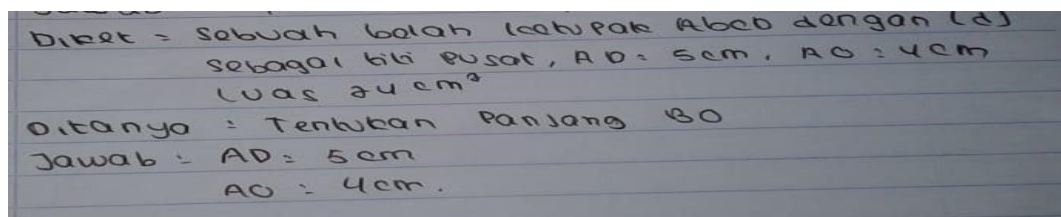 Diket = Sebuah belah ketupat Abcd dengan (d)
sebagai titi pusat, AD = 5cm, AO = 4cm
Luas 24 cm²
Ditanya = Tentukan Panjang BO
Jawab = AD = 5cm
AO = 4cm.